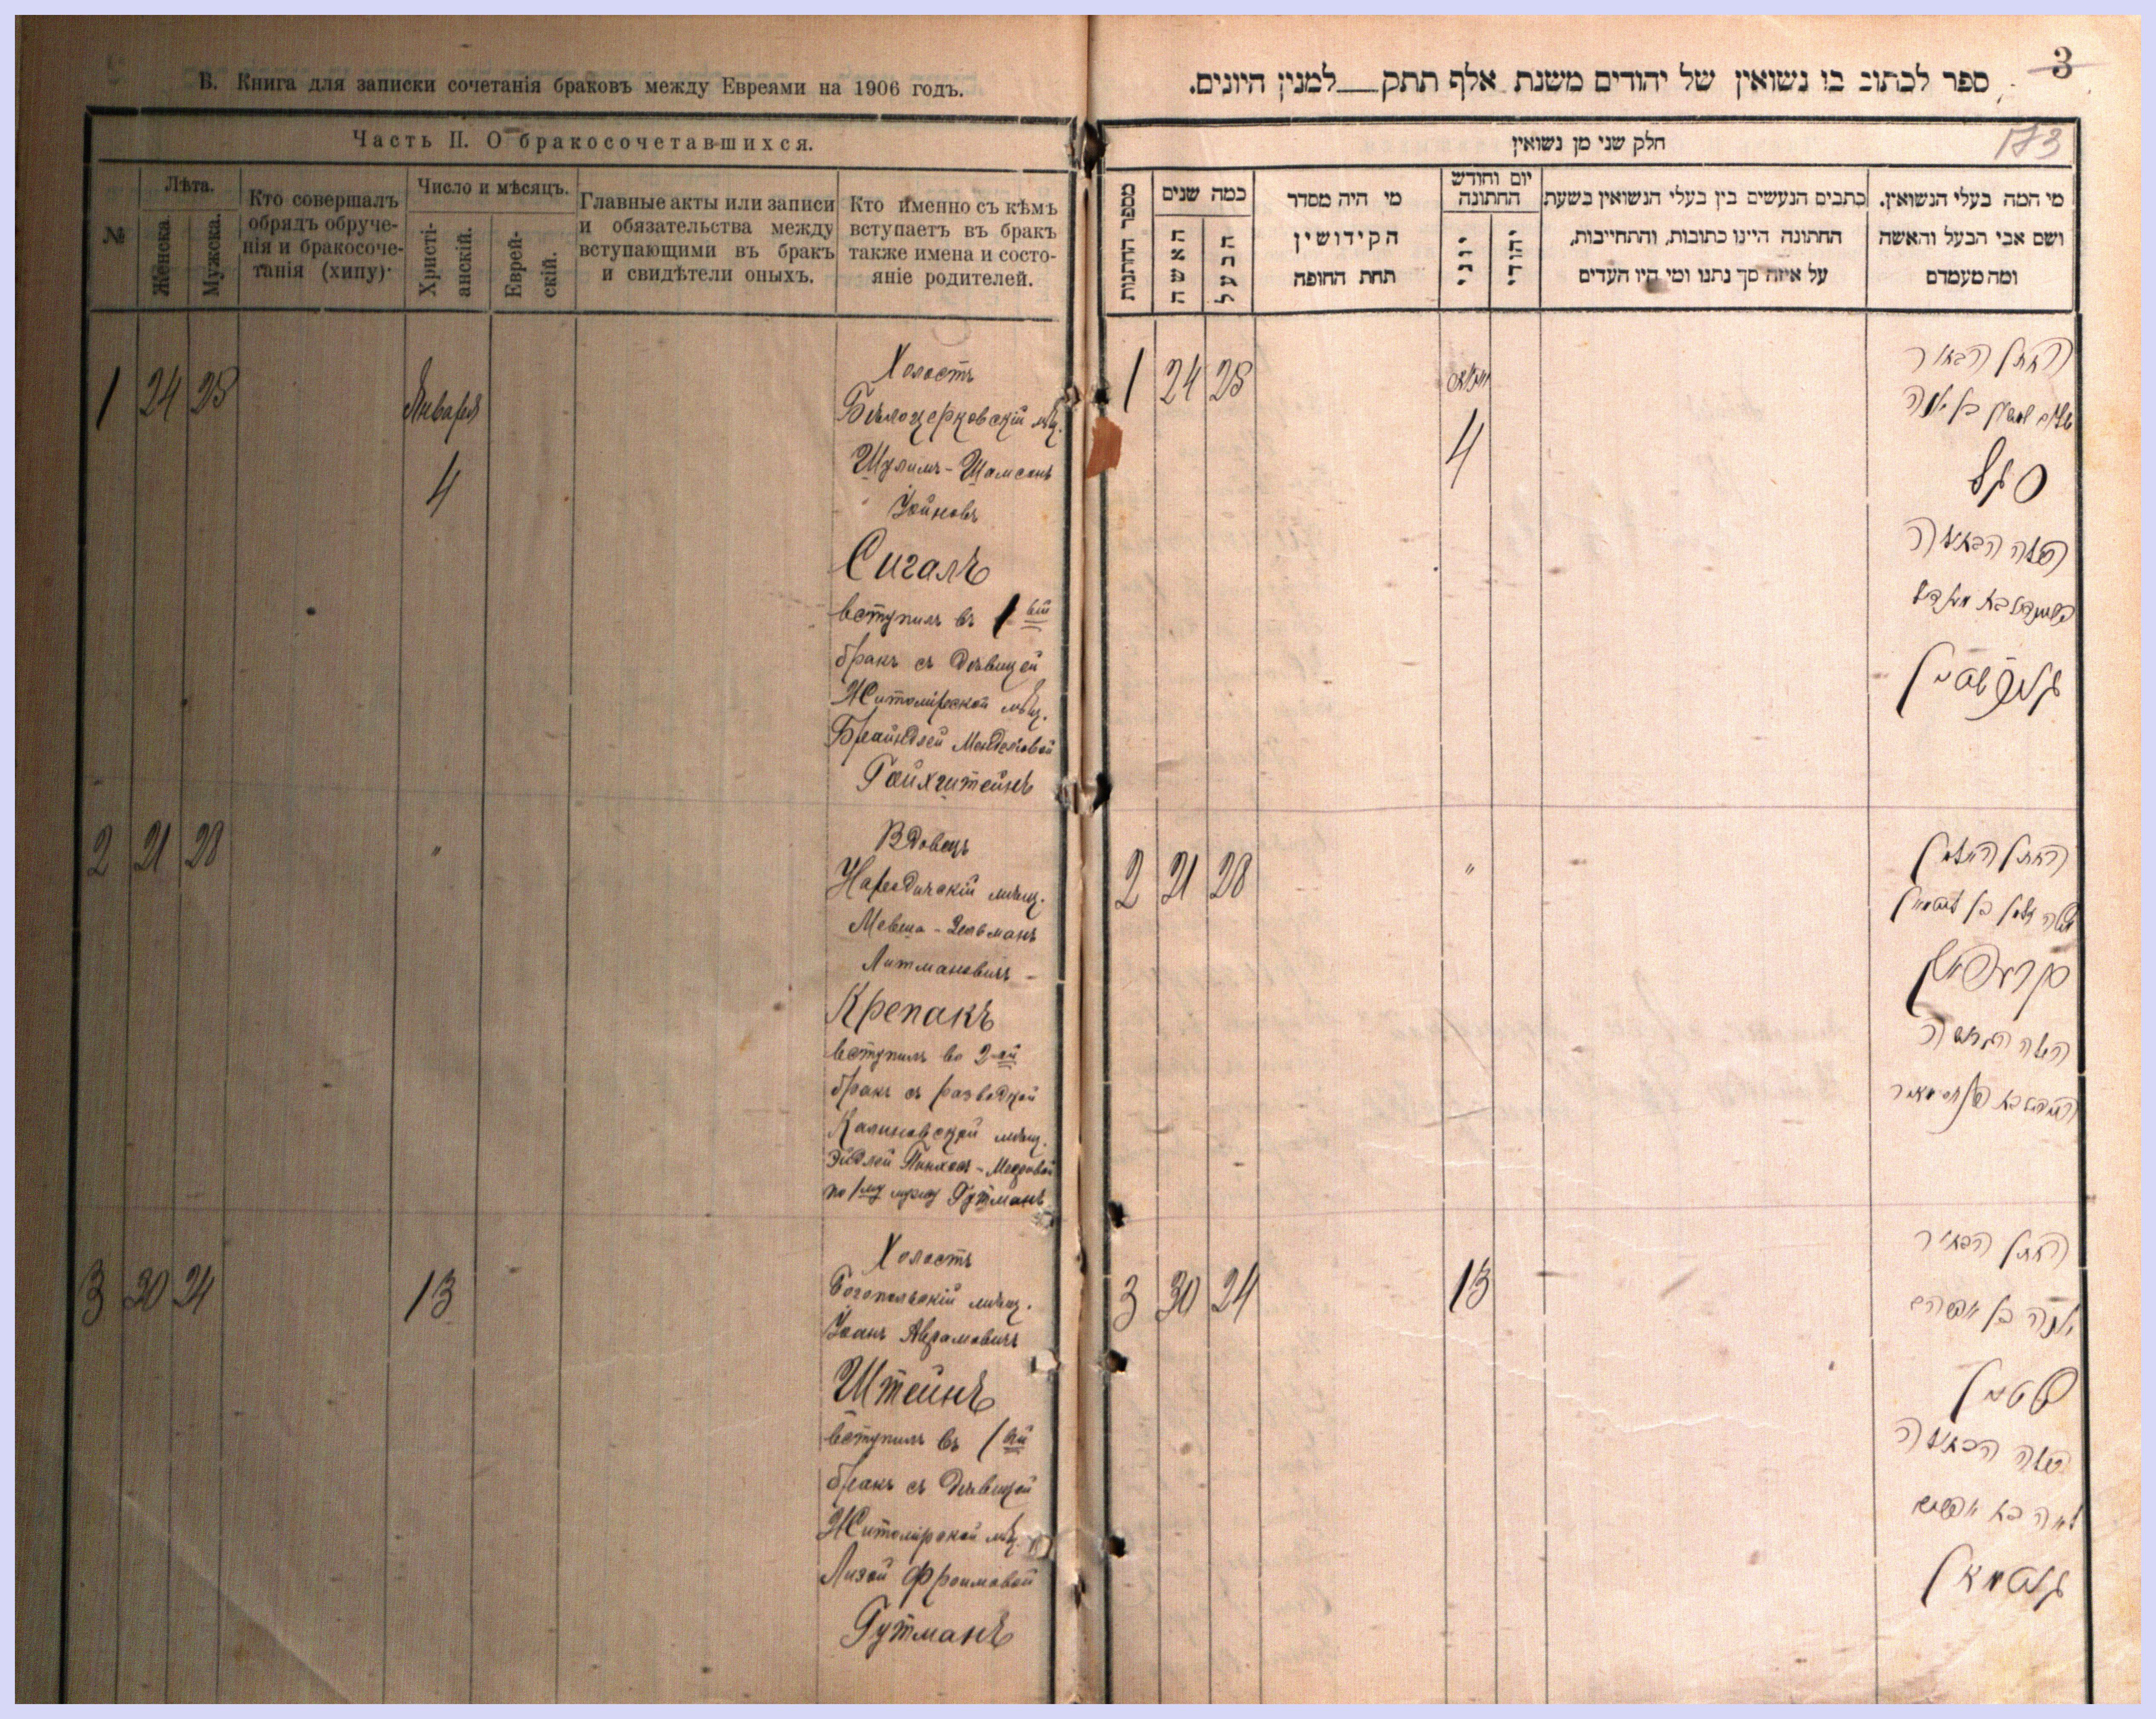 В. Книга для записки сочетанія браковъ между Евреями на 1906 годъ.
Часть II. О бракосочетавшихся.
№
Лѣта.
Женска.
Мужска.
Кто совершалъ
обрядъ обруче-
нія и бракосоче-
танія (хипу).
Число и мѣсяцъ.
Христі-
анскій.
Еврей-
скій.
Главные акты или записи
и обязательства между
вступающими въ бракъ
и свидѣтели оныхъ.
Кто именно съ кѣмъ
вступаетъ въ бракъ
также имена и состо-
яніе родителей.
1 24 28
Января
4
Холостъ
Бѣлоцерковскій мѣщ.
Шулимъ-Шамсонъ
Сигалъ
вступилъ въ 1вый
бракъ съ дѣвицей
Житомірской мѣщ.
Брайндлей Менделовой
Гойхштейнъ
2 21 28
"
Вдовецъ
Народичскій мѣщ.
Мевша-Зельманъ
Литмановичъ
Крепакъ
вступилъ во 2-ой
бракъ съ разводкой
Калиновской мѣщ.
Эйдлей Пинхос-Мееровой
по 1му мужу Гутманъ
3 30 24
13
Холостъ
Богопольскій мѣщ.
Штейнъ
вступилъ въ 1вый
бракъ съ дѣвицей
Житомірской мѣщ.
Лизой Фроимовой
Гутманъ
3
ספר לכתוב בו נשואין של יהודים משנת אלף תתק למנין היונים.
173
חלק שני מן נשואין
מספר החתנות
כמה שנים
האשה
הבעל
מי היה מסדר
הקידושין
תחת החופה
יום וחודש
החתונה
יוני
יהודי
כתבים הנעשים בין בעלי הנשואין בשעת
החתונה היינו כתובות, והתחייבות,
על איזה סך נתנו ומי היו העדים
מי המה בעלי הנשואין.
ושם אבי הבעל והאשה
ומה מעמדם
1 24 28
4
החתן הבחור
סיגל
הכלה הבתולה
גויכשטיין
2 21 28
"
החתן האלמן
הכלה הגרושה
3 30 24
13
החתן הבחור
שטיין
הכלה הבתולה
גוטמאן